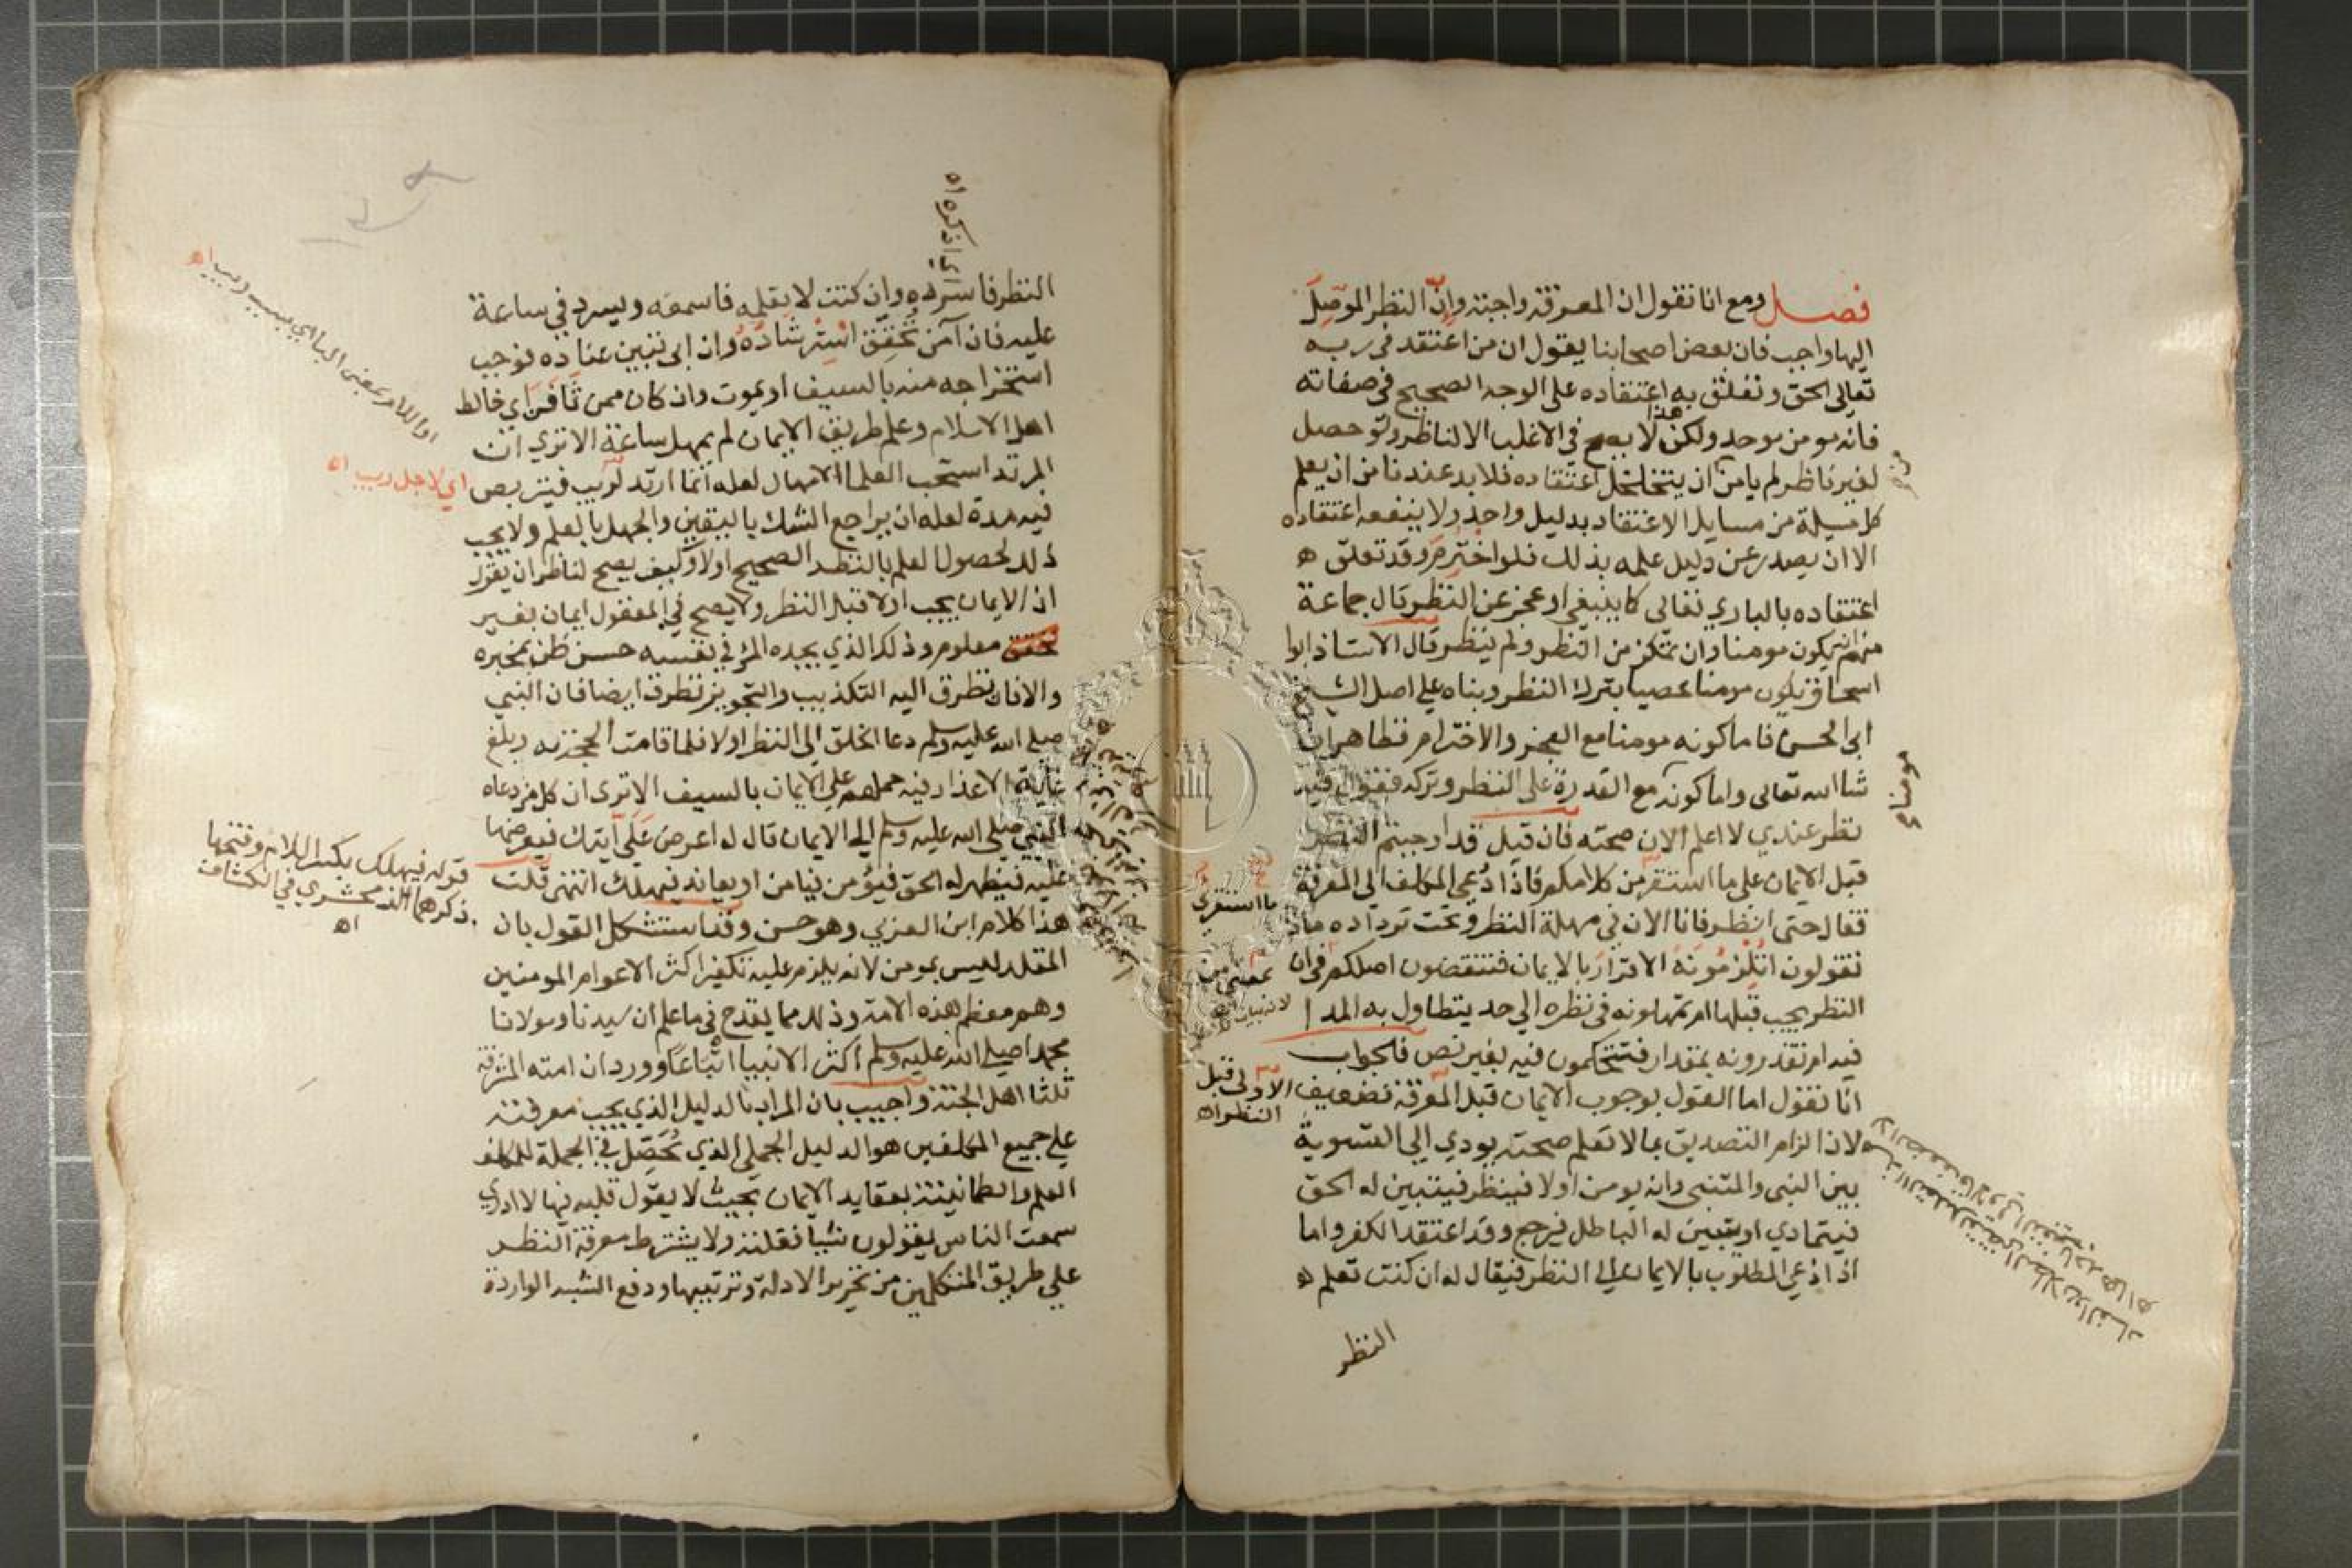 فصل ومع انا نقول ان المعرفة واجبة وانّ النظر الموصّل
اليها واجب فان بعض اصحابنا يقول ان من اعتقد في ربه
تعالى الحق وتعلق به اعتقاده على الوجه الصحيح في صفاته
فانه مومن موحد ولكن هذا لا يصح في الاغلب الا لناظر ولو حصل
لغير ناظر لم يامن ان يتخلخل اعتقاده فلا بد عندنا من ان يعلم
كل مسيلة من مسايل الاعتقاد بدليل واحد ولا ينفعه اعتقاده
الا ان يصدر عن دليل علمه بذلك فلو اخترم وقد تعلق
اعتقاده بالباري تعالى كما ينبغي او عجز عن النظر قال جماعة
منهم انه يكون مومنا وان تمكن من النظر ولم ينظر قال الاستاذ ابوا
اسحاق يكون مومنا عصيا بترك النظر وبناه على اصل الشيخ
ابي الحسن فاما كونه مومنا مع العجز والاخترام فظاهر ان
شا الله تعالى واما كونه مع القدرة على النظر وتركه فقوله فيه
نظر عندي لا اعلم الان صحته فان قيل قد اوجبتم النظر
قبل الايمان على ما استقر من كلامكم فاذا دُعي المكلف الى المعرفة
فقال حتى انظر فانا الان في مهلة النظر وتحت ترداده ماذا
تقولون اتلزمونه الاقرار بالايمان فتنقضون اصلكم في ان
النظر يجب قبله ام تمهلونه في نظره الى حد يتطاول به المدا
فيه ام تقدرونه بمقدار فتتحكمون فيه بغير نص فالجواب
انا نقول اما القول بوجوب الايمان قبل المعرفة فضعيف
لان الزام التصديق بما لا تعلم صحته يودي الى التسوية
بين النبي والمتنبي وانه يومن اولا فينظر فيتبين له الحق
فيتمادي او يتبين له الباطل فيرجع وقد اعتقد الكفر واما
اذا دعي المطلوب بالايمان الى النظر فيقال له ان كنت تعلم
النظر
مومنا
ما استقري
بمعنى من
الاولى قبل
النظر اه
النظر فاسرده وان كنت لا تعلمه فاسمعه ويسرد في ساعة
عليه فان آمن تحقق استرشاده وان ابى تبين عناده فوجب
استخراجه منه بالسيف او يموت وان كان ممن ثافن اي خالط
اهل الاسلام وعلم طريق الايمان لم يمهل ساعة الا ترى ان
المرتد استحب العلما الامهال لعله انما ارتد لريب فيتربص
فيه مدة لعله ان يراجع الشك باليقين والجهل بالعلم ولا يجب
ذلك لحصول العلم بالنظر الصحيح اولا وكيف يصح لناظر ان يقول
ان الايمان يجب اولا قبل النظر ولا يصح في المعقول ايمان بغير
معلوم وذلك الذي يجده المرء في نفسه حسن ظن بمخبره
والا فان تطرق اليه التكذيب والتجويز تطرق ايضا فان النبي
صلى الله عليه وسلم دعا الخلق الى النظر اولا فلما قامت الحجة به وبلغ
غاية الاعذار فيه حملهم على الايمان بالسيف الا ترى ان كل من دعاه
النبي صلى الله عليه وسلم الى الايمان قال له اعرض عَلَيَّ آيتك فيعرضها
عليه فيظهر له الحق فيؤمن فيامن او يعاند فيهلك انتهى قلت
هذا كلام ابن العربي وهو حسن وقد استشكل القول بان
المقلد ليس بمومن لانه يلزم عليه تكفير اكثر الاعوام المومنين
وهم معظم هذه الامة وذلك مما يقدح في ما علم ان سيدنا ومولانا
محمدا صلى الله عليه وسلم اكثر الانبيا اتباعا وورد ان امته المشرفة
ثلثا اهل الجنة واجيب بان المراد بالدليل الذي يجب معرفته
على جميع المكلفين هو الدليل الجملي الذي يحصل في الجملة للمكلف
العلم والطمانينة بعقايد الايمان بحيث لا يقول قلبه فيها لا ادري
سمعت الناس يقولون شيا فقلته ولا يشترط معرفة النظر
على طريق المتكلمين من تحرير الادلة وترتيبها ودفع الشبه الواردة
اي اذكره اه
او اللام بمعنى البا اي بسبب ريب اه
اي لاجل ريب اه
قوله فيهلك بكسر اللام وفتحها
ذكرهما الزمحشري في الكشاف
اه